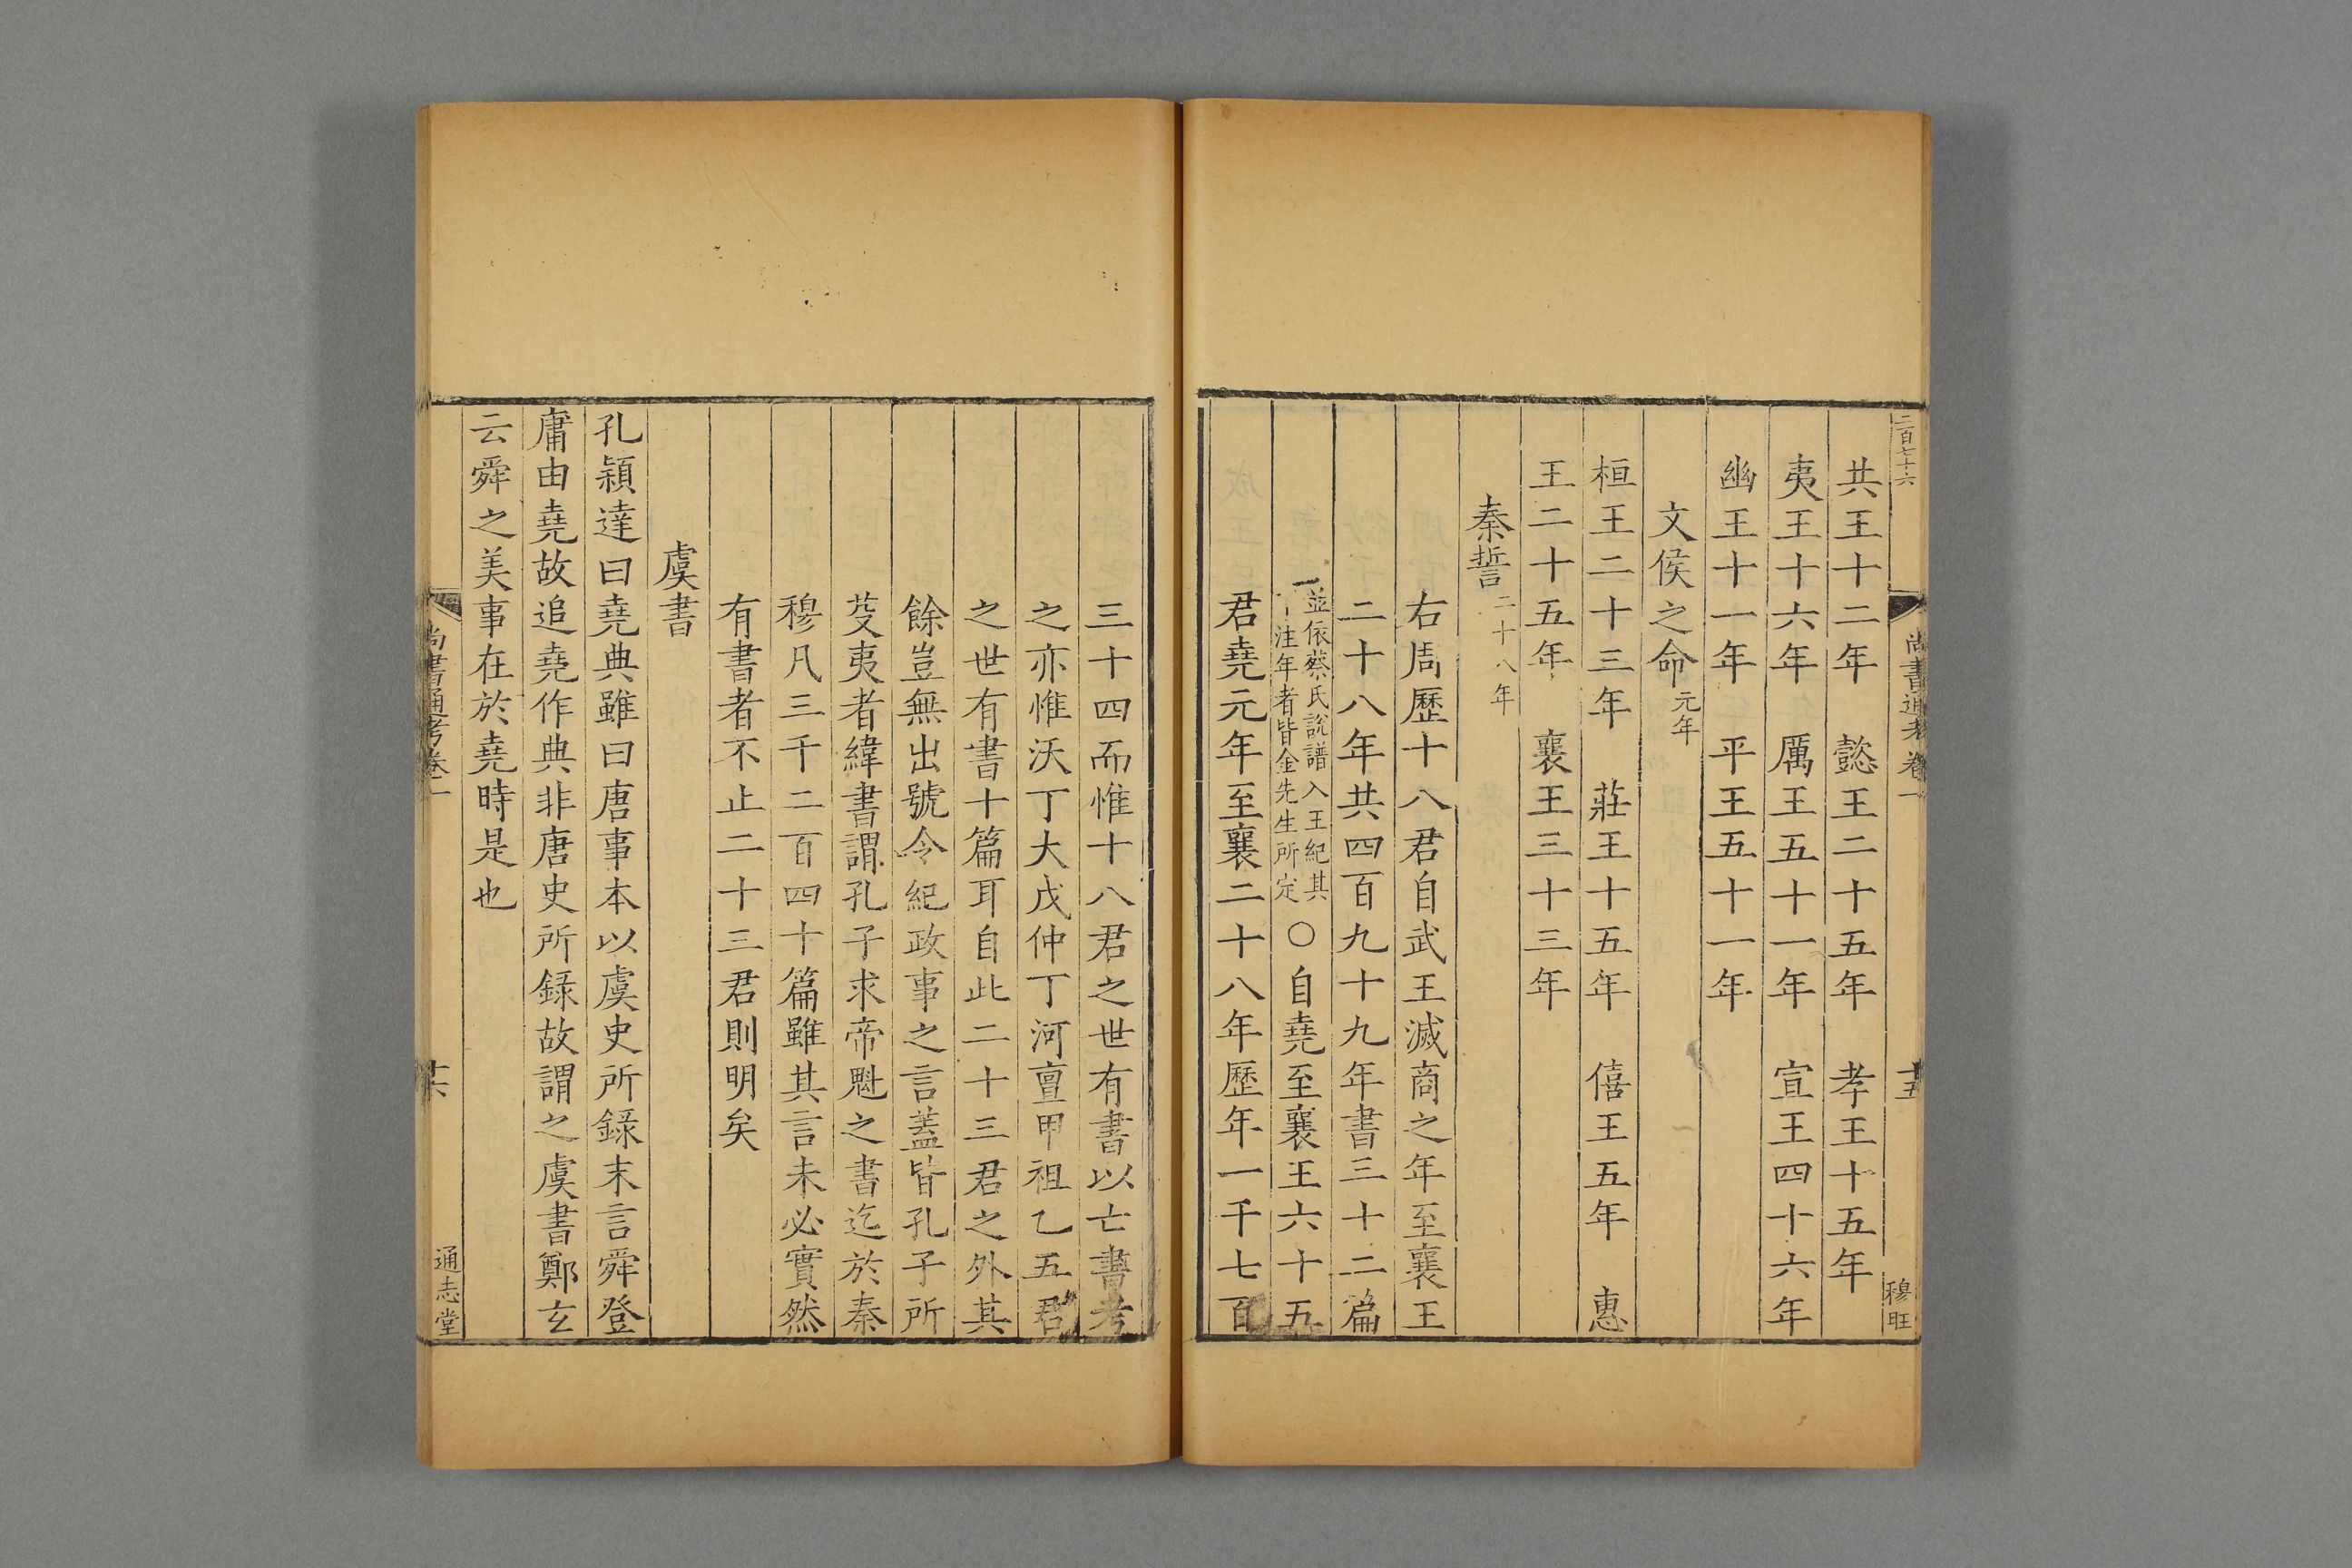 二百七十六
尚書通考卷一
十五
穆旺
共王十二年　懿王二十五年　孝王十五年
夷王十六年　厲王五十一年　宣王四十六年
幽王十一年　平王五十一年
文侯之命元年
桓王二十三年　莊王十五年　僖王五年　惠
王二十五年　襄王三十三年
秦誓二十八年
右周歷十八君自武王滅商之年至襄王
二十八年共四百九十九年書三十二篇
並依蔡氏說譜入王紀其
下注年者皆金先生所定
○自堯至襄王六十五
君堯元年至襄二十八年歷年一千七百
三十四而惟十八君之世有書以亡書考
之亦惟沃丁大戊仲丁河亶甲祖乙五君
之世有書十篇耳自此二十三君之外其
餘豈無出號令紀政事之言蓋皆孔子所
芟夷者緯書謂孔子求帝魁之書迄於秦
穆凡三千二百四十篇雖其言未必實然
有書者不止二十三君則明矣
虞書
孔頴達曰堯典雖曰唐事本以虞史所錄末言舜登
庸由堯故追堯作典非唐史所錄故謂之虞書鄭玄
云舜之美事在於堯時是也
尚書通考卷一
十六
通志堂